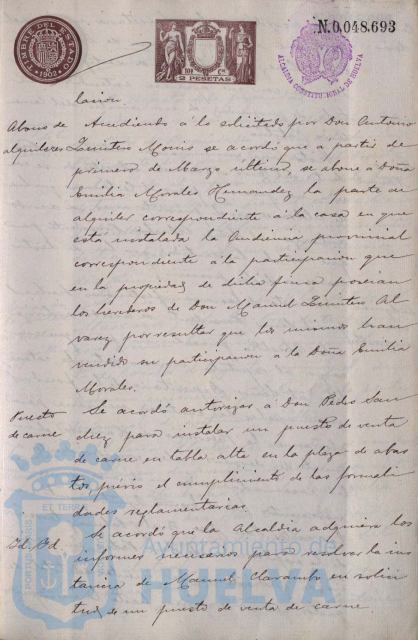 TIMBRE DEL ESTADO
1902
100 Cs
2 PESETAS
N.0,048.693
ALCALDIA CONSTITUCIONAL DE HUELVA
lacion
Abono de alquileres
Accediendo á lo solicitado por Don Antonio
Quintero Monis se acordó que á partir de
primero de Marzo último, se abone á Doña
Emilia Morales Hernandez la parte de
alquiler correspondiente á la casa en que
está instalada la Audiencia provincial
correspondiente á la participacion que
en la propiedad de dicha finca poseian
los herederos de Don Manuel Quintero Al
varez por resultar que los mismos han
vendido su participacion á la Doña Emilia
Morales.
Puesto de carne
Se acordó autorizar á Don Pedro San
diez para instalar un puesto de venta
de carne en tabla alta en la plaza de abas
tos, previo el cumplimiento de las formali
dades reglamentarias.
Id. Id.
Se acordó que la Alcaldia adquiera los
informes necesarios para resolver la ins
tancia de Manuel Clarambo en solici
tud de un puesto de venta de carne.
PORTUS MARIS ET TERRAE
Ayuntamiento de
HUELVA